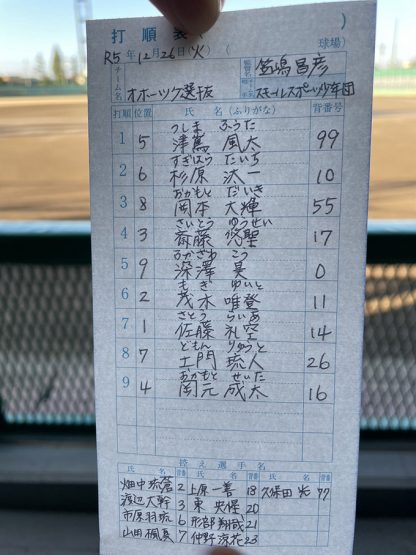 打順表(　　　　　　)
R5年12月26日(火)(　　　　　球場)
チーム名 オホーツク選抜 昌彦
スキールスポーツ少年団
打順 位置 氏　名(ふりがな) 背番号
つしま ふうた
1 5 津篤 風太 99
すぎはら たいち
2 6 杉原 汰一 10
おかもと だいき
3 8 岡本 大輝 55
さいとう ゆうせい
4 3 斎藤 悠聖 17
ふかざわ こう
5 9 深澤 昊 0
もぎ ゆいと
6 2 茂木 唯登 11
さとう らいあ
7 1 佐藤 礼空 14
どもん りゅうと
8 7 土門 琉人 26
おかもと せいた
9 4 岡元 成太 16
控え選手名
氏　名 背番 氏　名 背番 氏　名 背番
畑中 琉 2 上原 一善 18 久保田 光 77
渡辺 大幹 3 東 央保 20
市原 羽琉 6 形部 翔哉 21
山田 楓真 7 仲野 涼花 23